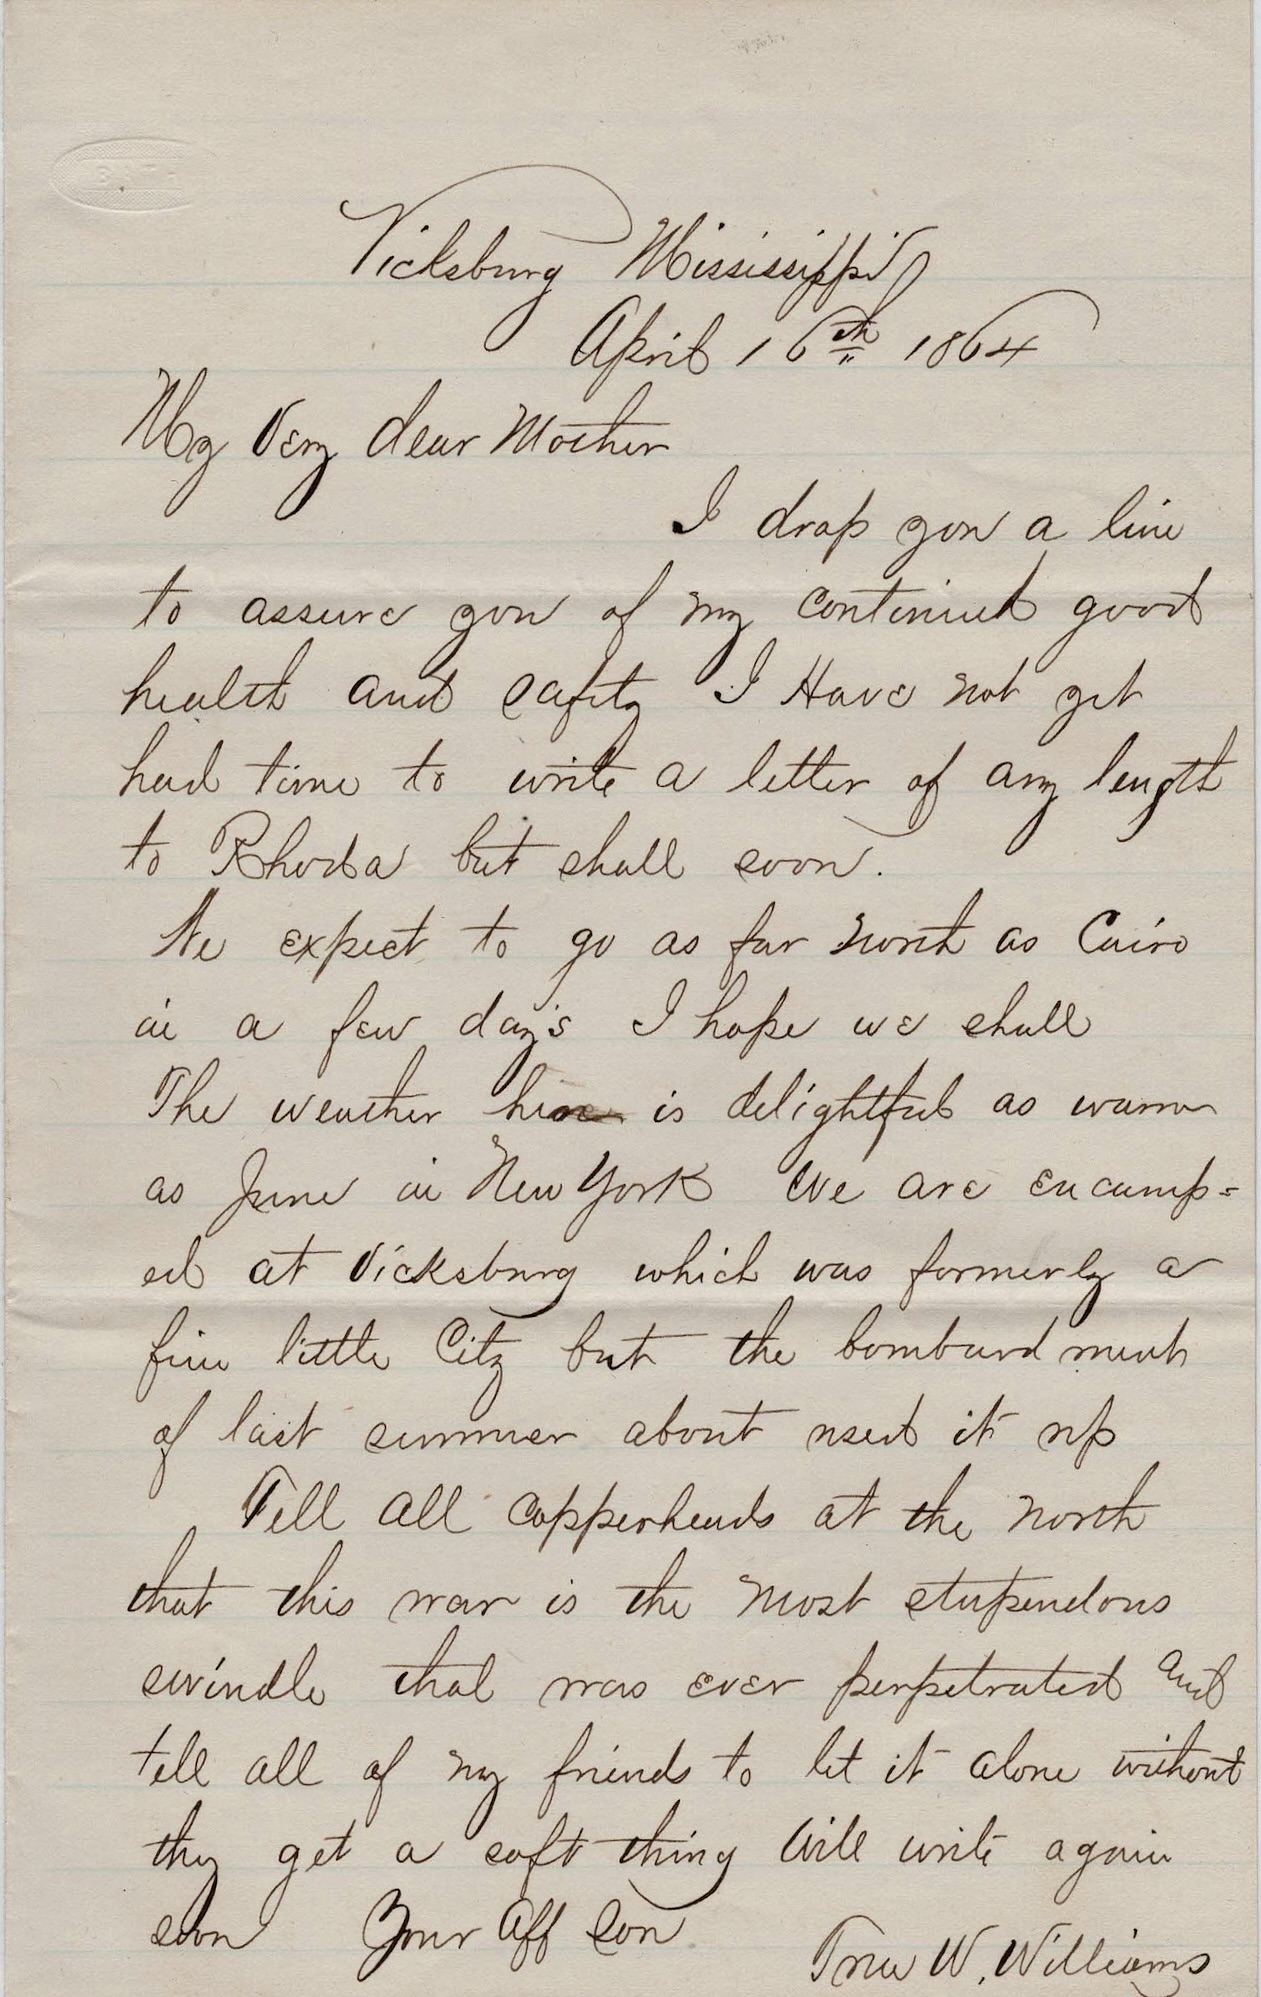 Vicksburg Mississippi
April 16th 1864
My Very dear Mother
I drop you a line
to assure you of my continued good
health and safety I Have not yet
had time to write a letter of any length
to Rhoda but shall soon.
We expect to go as far north as Cairo
in a few day's I hope we shall
The weather here is delightful as warm
as June in New York We are encamp=
ed at Vicksburg which was formerly a
fine little City but the bombardment
of last summer about used it up
Tell all copperheads at the north
that this war is the most stupendous
swindle that was ever perpetrated and
tell all of my friends to let it alone without
they get a soft thing Will write again
soon Your Aff Son
True W. Williams